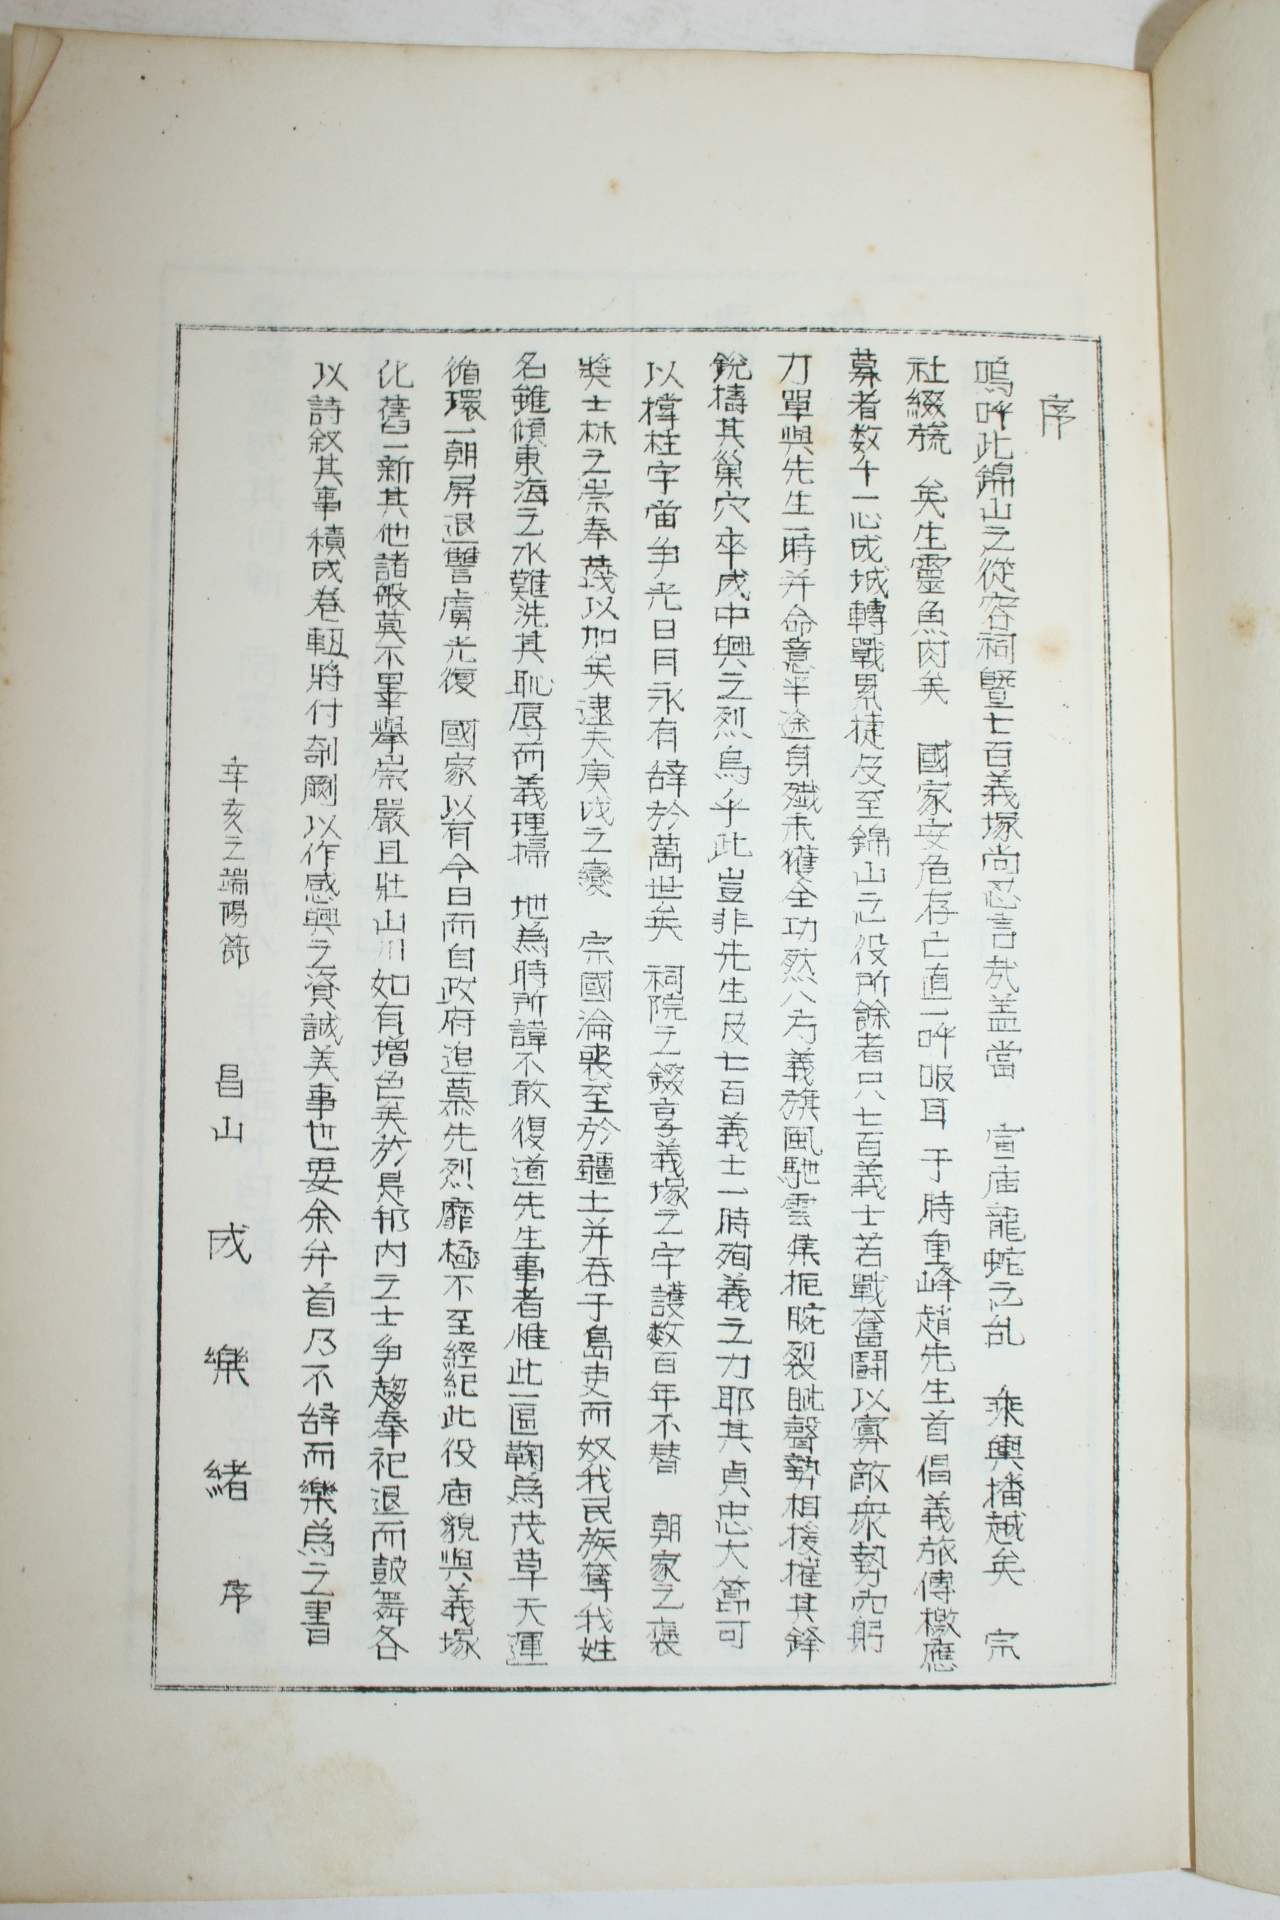 序
嗚呼此錦山之從容祠曁七百義塚尚忍言哉盖當 宣庙龍蛇之乱 乘輿播越矣 宗
社綴旒 矣生靈魚肉矣 國家安危存亡直一呼吸耳 于時重峰趙先生首倡義旅傳檄應
募者数千一心成城轉戰累捷及至錦山之役所餘者只七百義士若戰奮鬪以寡敵衆勢穴躬
力單與先生一時并命意半途身殲未獲全功然八方義旗風馳雲集扼腕裂眦聲勢相援摧其鋒
銳擣其巢穴卒成中興之烈烏乎此豈非先生及七百義士一時殉義之力耶其貞忠大節可
以撑柱宇宙争光日月永有辭於萬世矣 祠院之餟享義塚之守護数百年不替 朝家之褒
奬士林之崇奉蔑以加矣逮夫庚戌之變 宗國淪喪至於疆土并呑于島吏而奴我民族奪我姓
名雖傾東海之水難洗其恥辱而義理掃 地為時所諱不敢復道先生事者惟此一區鞠爲茂草天運
循環一朝屏退讐虜光復 國家以有今日而自政府追慕先烈靡極不至經紀此役庙貌與義塚
化舊一新其他諸般莫不畢擧崇嚴且壯山川如有增色矣於是邦内之士争趨奉祀退而鼓舞各
以詩叙其事積成卷軸將付剞劂以作感興之資誠義事也要余弁首乃不辭而樂爲之書
辛亥之端陽節 昌山 成 樂 緖 序